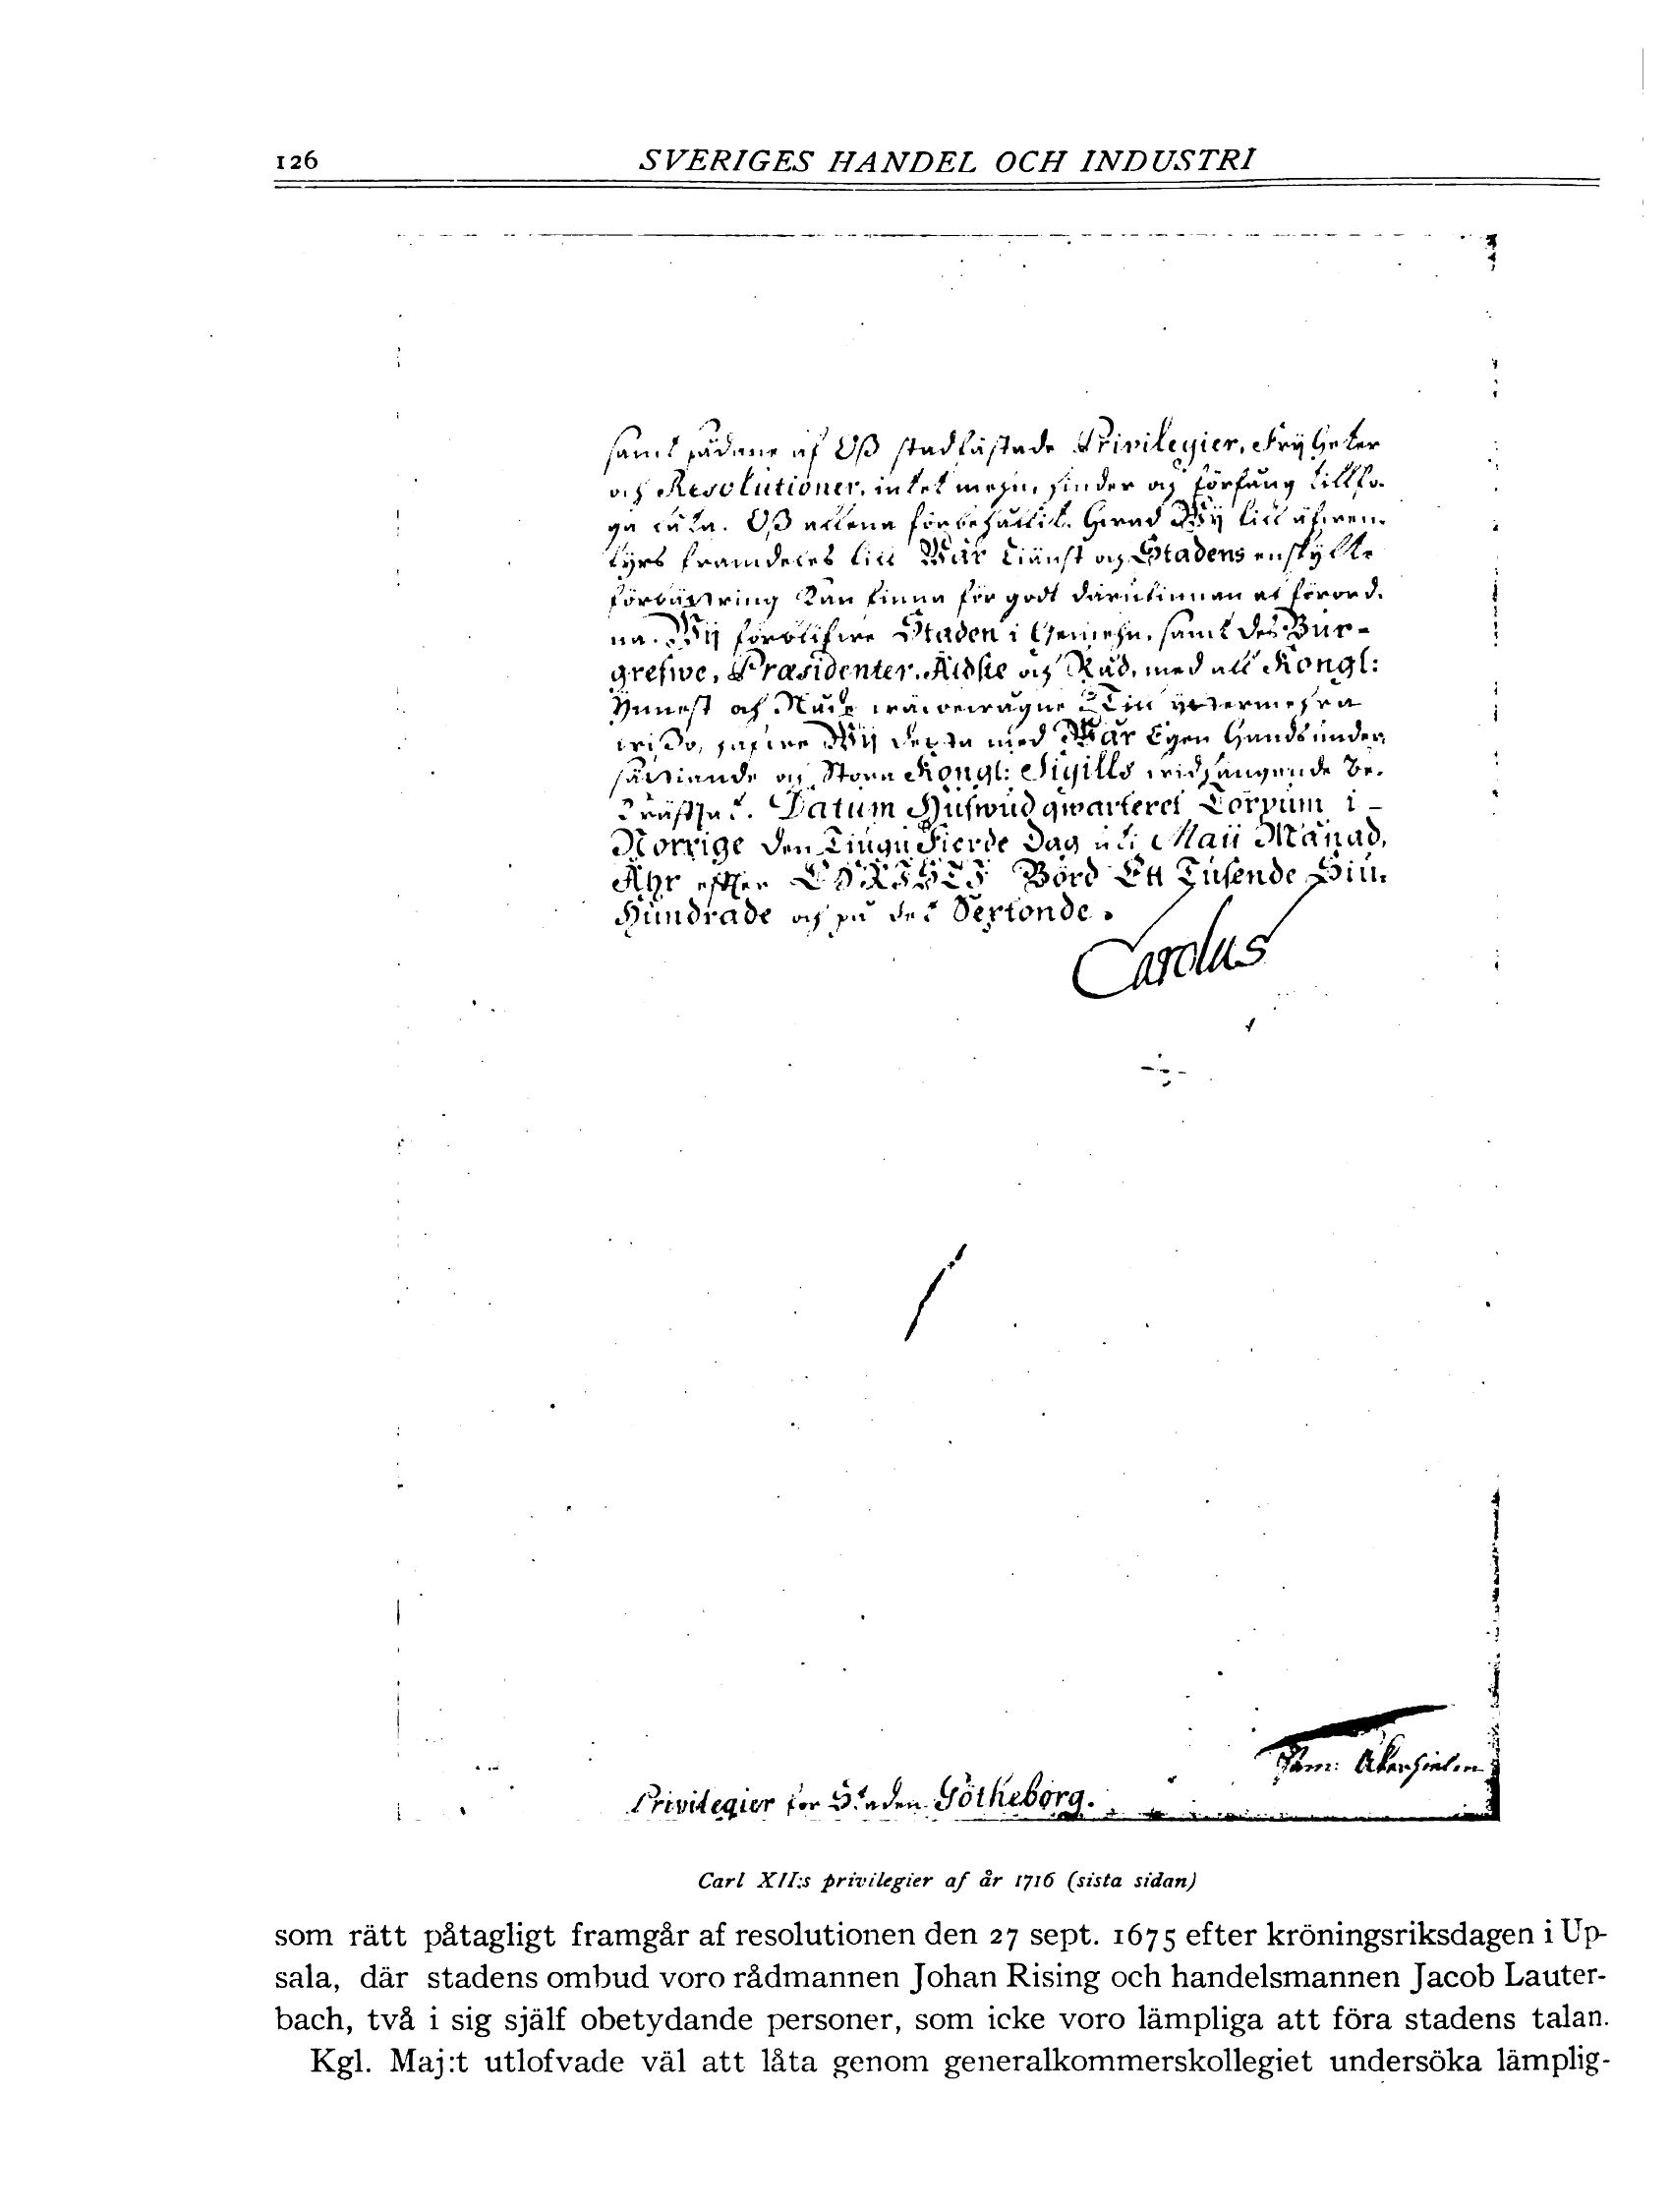 126
SVERIGES HANDEL OCH INDUSTRI
samt sådane af Oß stadfästade Privilegier, Frijheter
och Resolutioner, intet mehn, hinder och förfång tillfo-
ga låta. Oß allena förbehållit, hwad Wij till äfwen-
tyrs framdeles till Wår tiänst och Stadens enskylte
förbättring kan finna för godt därutinnan at förord-
na. Wij förblifwe Staden i Gemehn, samt des Bur-
grefwe, Præsidenter, Äldste och Råd, med all Kongl:
Ynnest och Nåde wälbewågne Till yttermehra
wißo, hafwe Wij detta med Wår Egen Hands under-
sättiande och Stora Kongl: Sigills widhängande be-
kräfftat. Datum Hufwudqwarteret Torpum i -
Norrige den Tiugu Fierde Dag uti Maii Månad,
Åhr effter CHRISTI Börd Ett Tusende Siu-
Hundrade och på det Sextonde.
Carolus
Sam: Åkerhielm
Privilegier for Staden Götheborg.
Carl XII:s privilegier af år 1716 (sista sidan)
som rätt påtagligt framgår af resolutionen den 27 sept. 1675 efter kröningsriksdagen i Up-
sala, där stadens ombud voro rådmannen Johan Rising och handelsmannen Jacob Lauter-
bach, två i sig själf obetydande personer, som icke voro lämpliga att föra stadens talan.
Kgl. Maj:t utlofvade väl att låta genom generalkommerskollegiet undersöka lämplig-